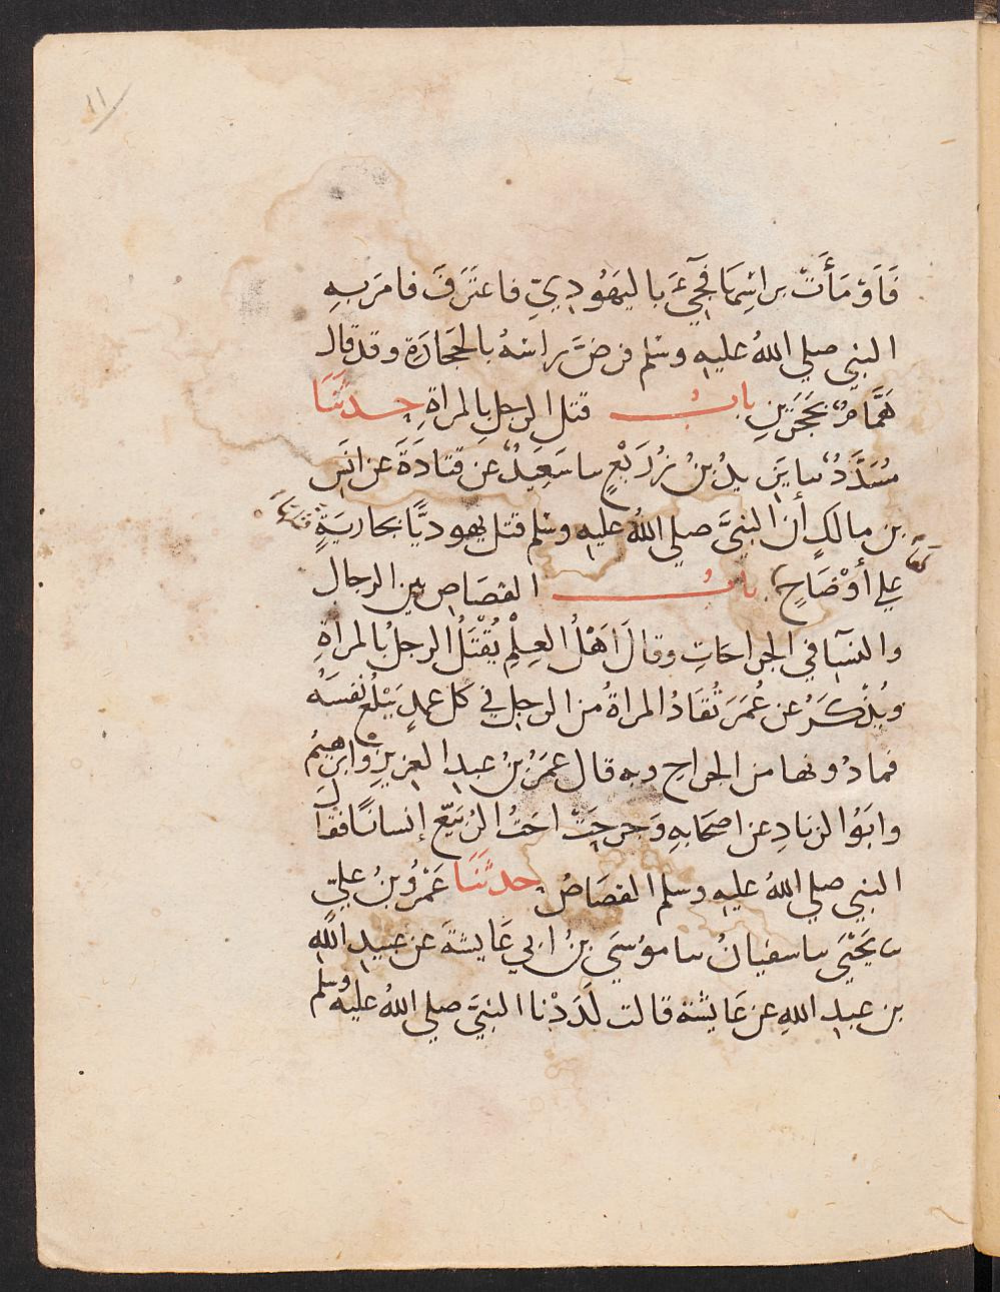 ١١
فَاَوْمَأَتْ براسِهَا فَجِيٓءَ باليَهُودِيِّ فاعتَرَفَ فامَربهِ
النبي صلي اللهُ عليهِ وسَلم فرضَّ راسَهُ بالحجَارَةِ وقد قال
هَمَّامٌ بحَجَرَينِ بابُ قتل الرجلِ بالمراةِ حدثَنَا
مُسَدَّدٌ سا يَزِيدُ بنُ زُرَيْعٍ سا سَعِيدٌ عن قتادَةَ عن انَسِ
بن مالكٍ أن النبيَّ صلي اللهُ عليهِ وسَلم قتل يهوديًّا بجاريَةٍ قتلَهَا
علي أوْضَاحٍ لها بابُ القصَاصِ بين الرجال
والنسَآ في الجراحَاتِ وقالَ اَهْلُ العِلْمِ يُقْتَلُ الرجلُ بالمراةِ
ويُذْكَرُ عن عُمَرَ تُقَادُ المراةُ من الرجلِ في كل عمدٍ يَبْلُغُ نفسَهُ
فمادُونها من الجراحِ وبه قال عمَرُ بنُ عبدِ العزيزِ وابرهيمُ
وابَوُا الزنادِ عن اصحَابهِ وَجرحَتْ اختُ الرُبَيّعِ إنسانًا فقالَ
النبي صلي اللهُ عليهِ وسلم القصَاصُ حدثَنَا عَمْرُو بنُ عليّ
سا يَحْيَي سا سفيانُ سا موُسَي بنُ ابي عَايشةَ عن عبيدِ اللهِ
بن عبدِ اللهِ عن عَايشة قالت لَدَدْنا النبيَّ صلي اللهُ عليهِ وسلم